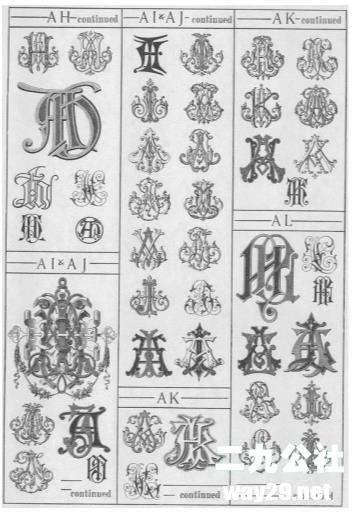 AH-continued
AI & AJ
continued
AI & AJ-continued
AK
continued
AK-continued
AL
continued
二九公社
way29.net